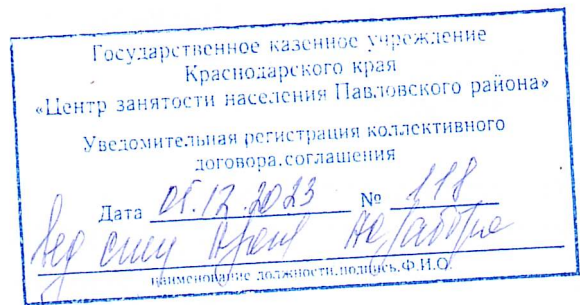 Государственное казенное учреждение
Краснодарского края
«Центр занятости населения Павловского района»
Уведомительная регистрация коллективного
договора,соглашения
Дата 12.2023 № 118
Вед спец
наименование должности,подпись,Ф.И.О.